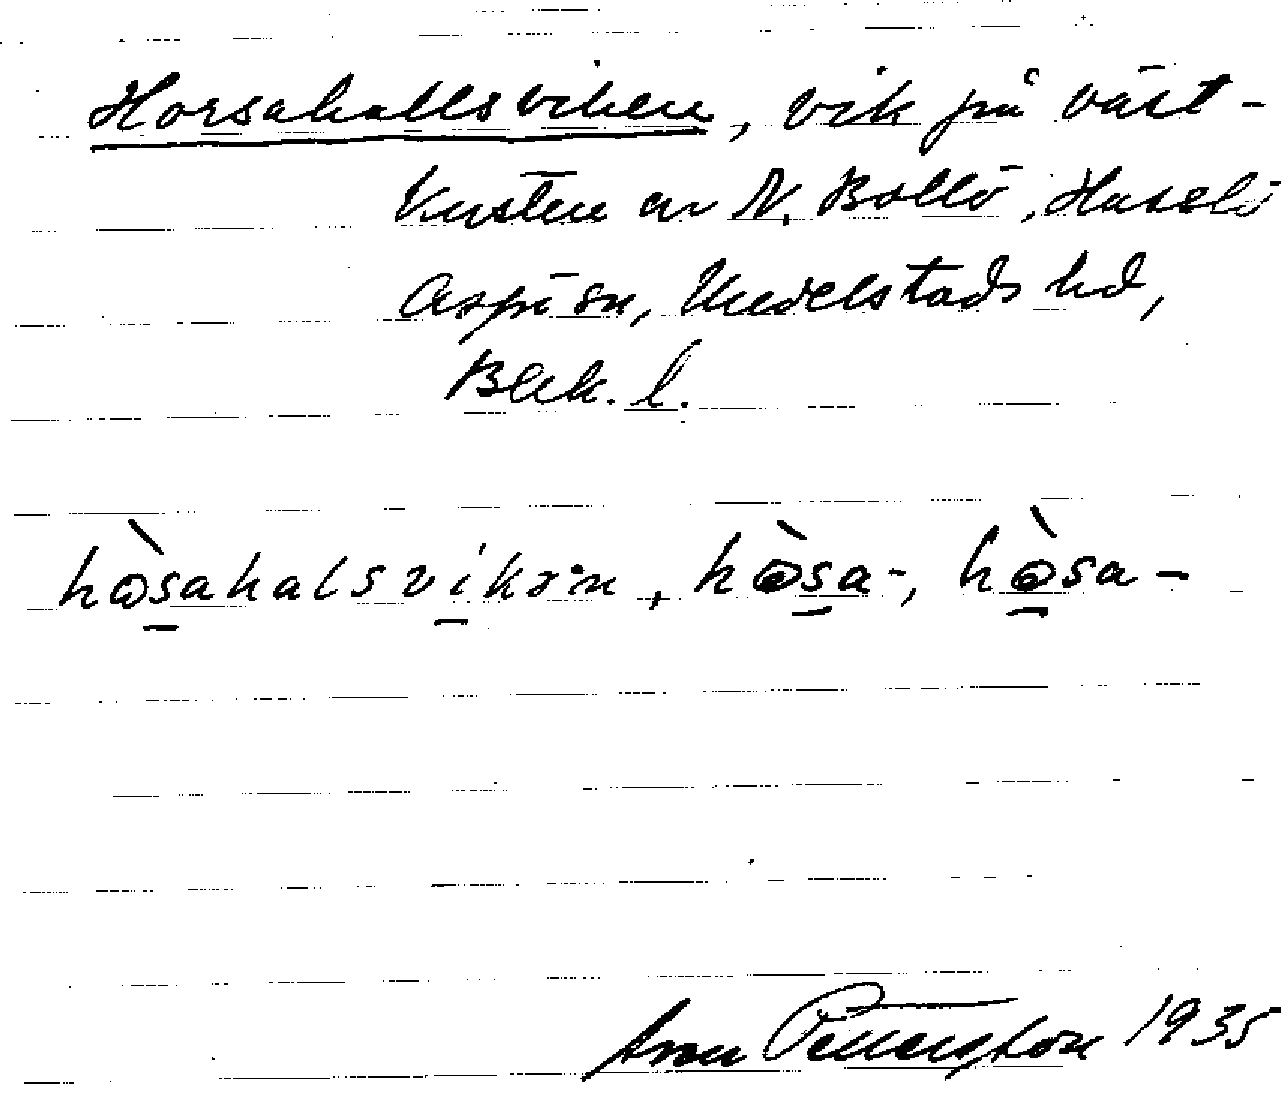 Horsahallsviken, vik på väst-
kusten av N. Bollö, Hasslö
Aspö sn, Medelstads hd,
Blek. l.
hòsahalsvikən, hòsa-, hòsa-
Pettersson 1935